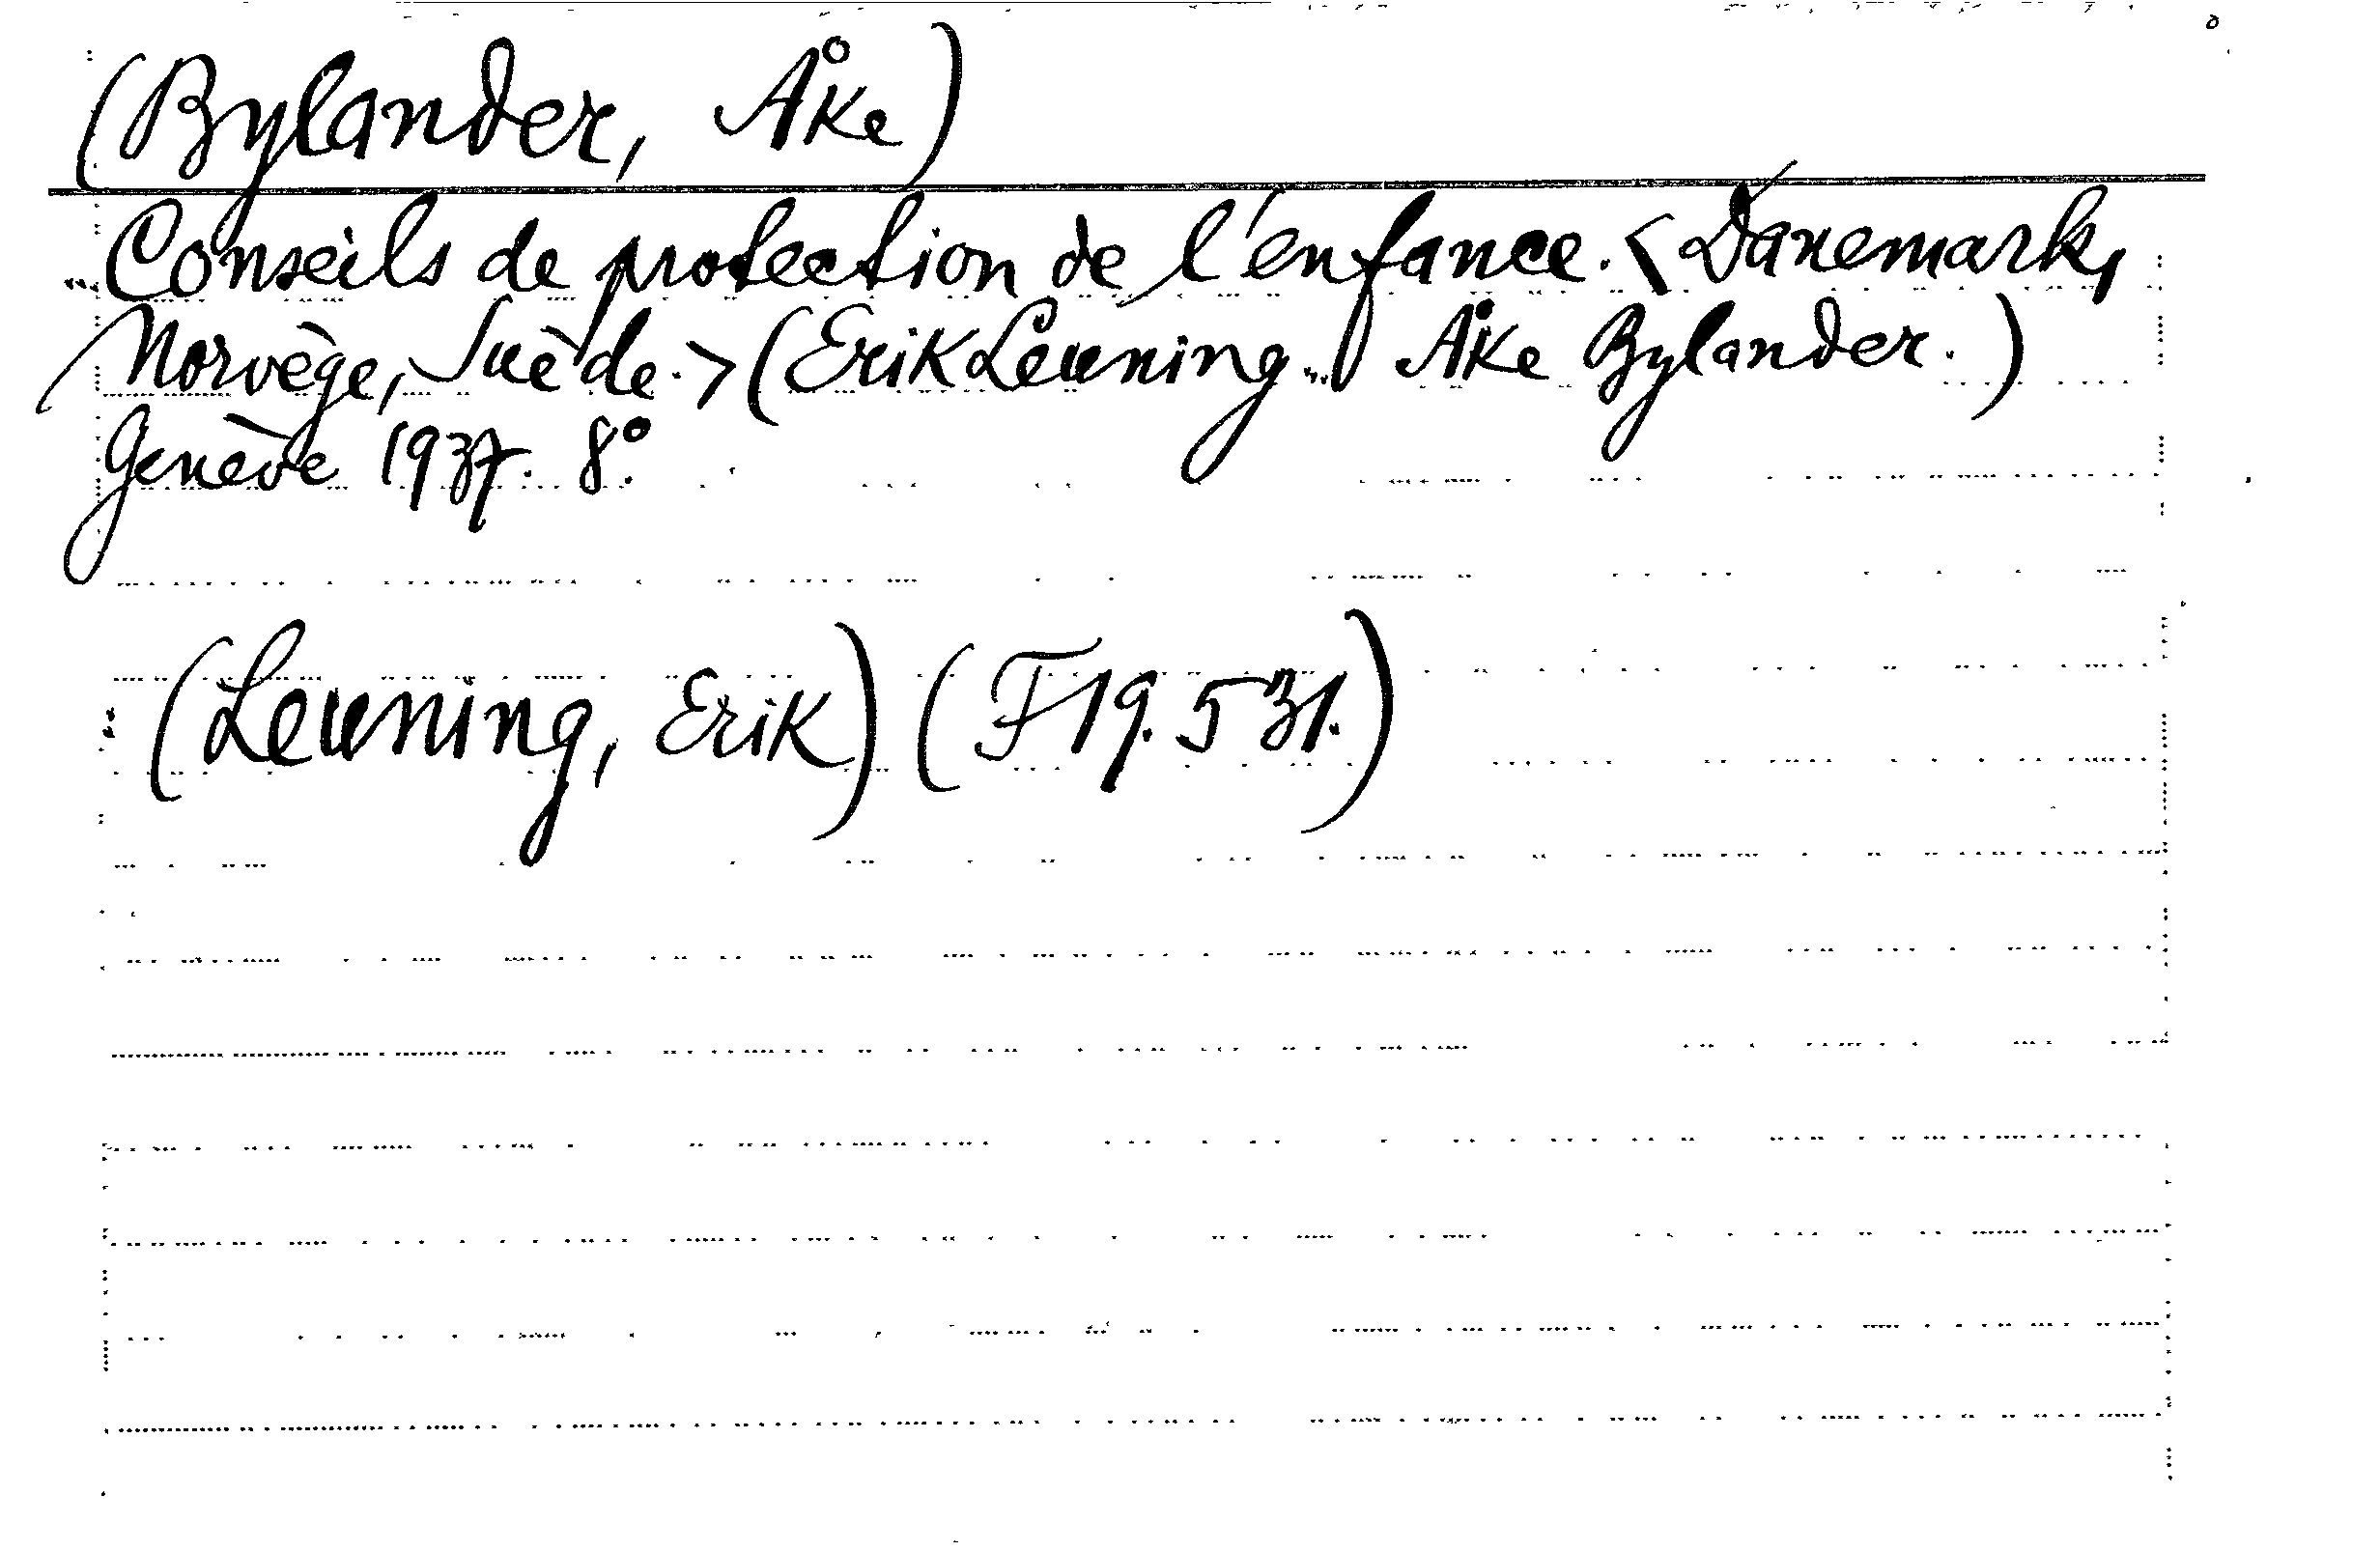 (Bylander, Åke)
Conseils de protection de l'enfance. <Danemark,
Norvège, Suède.> (Erik Leuning. Åke Bylander.)
Genève 1937. 8°.
(Leuning, Erik) (F 19.531.)